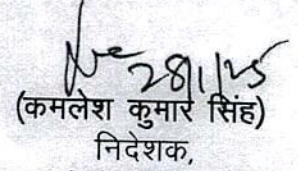 28/1/25
(कमलेश कुमार सिंह)
निदेशक,